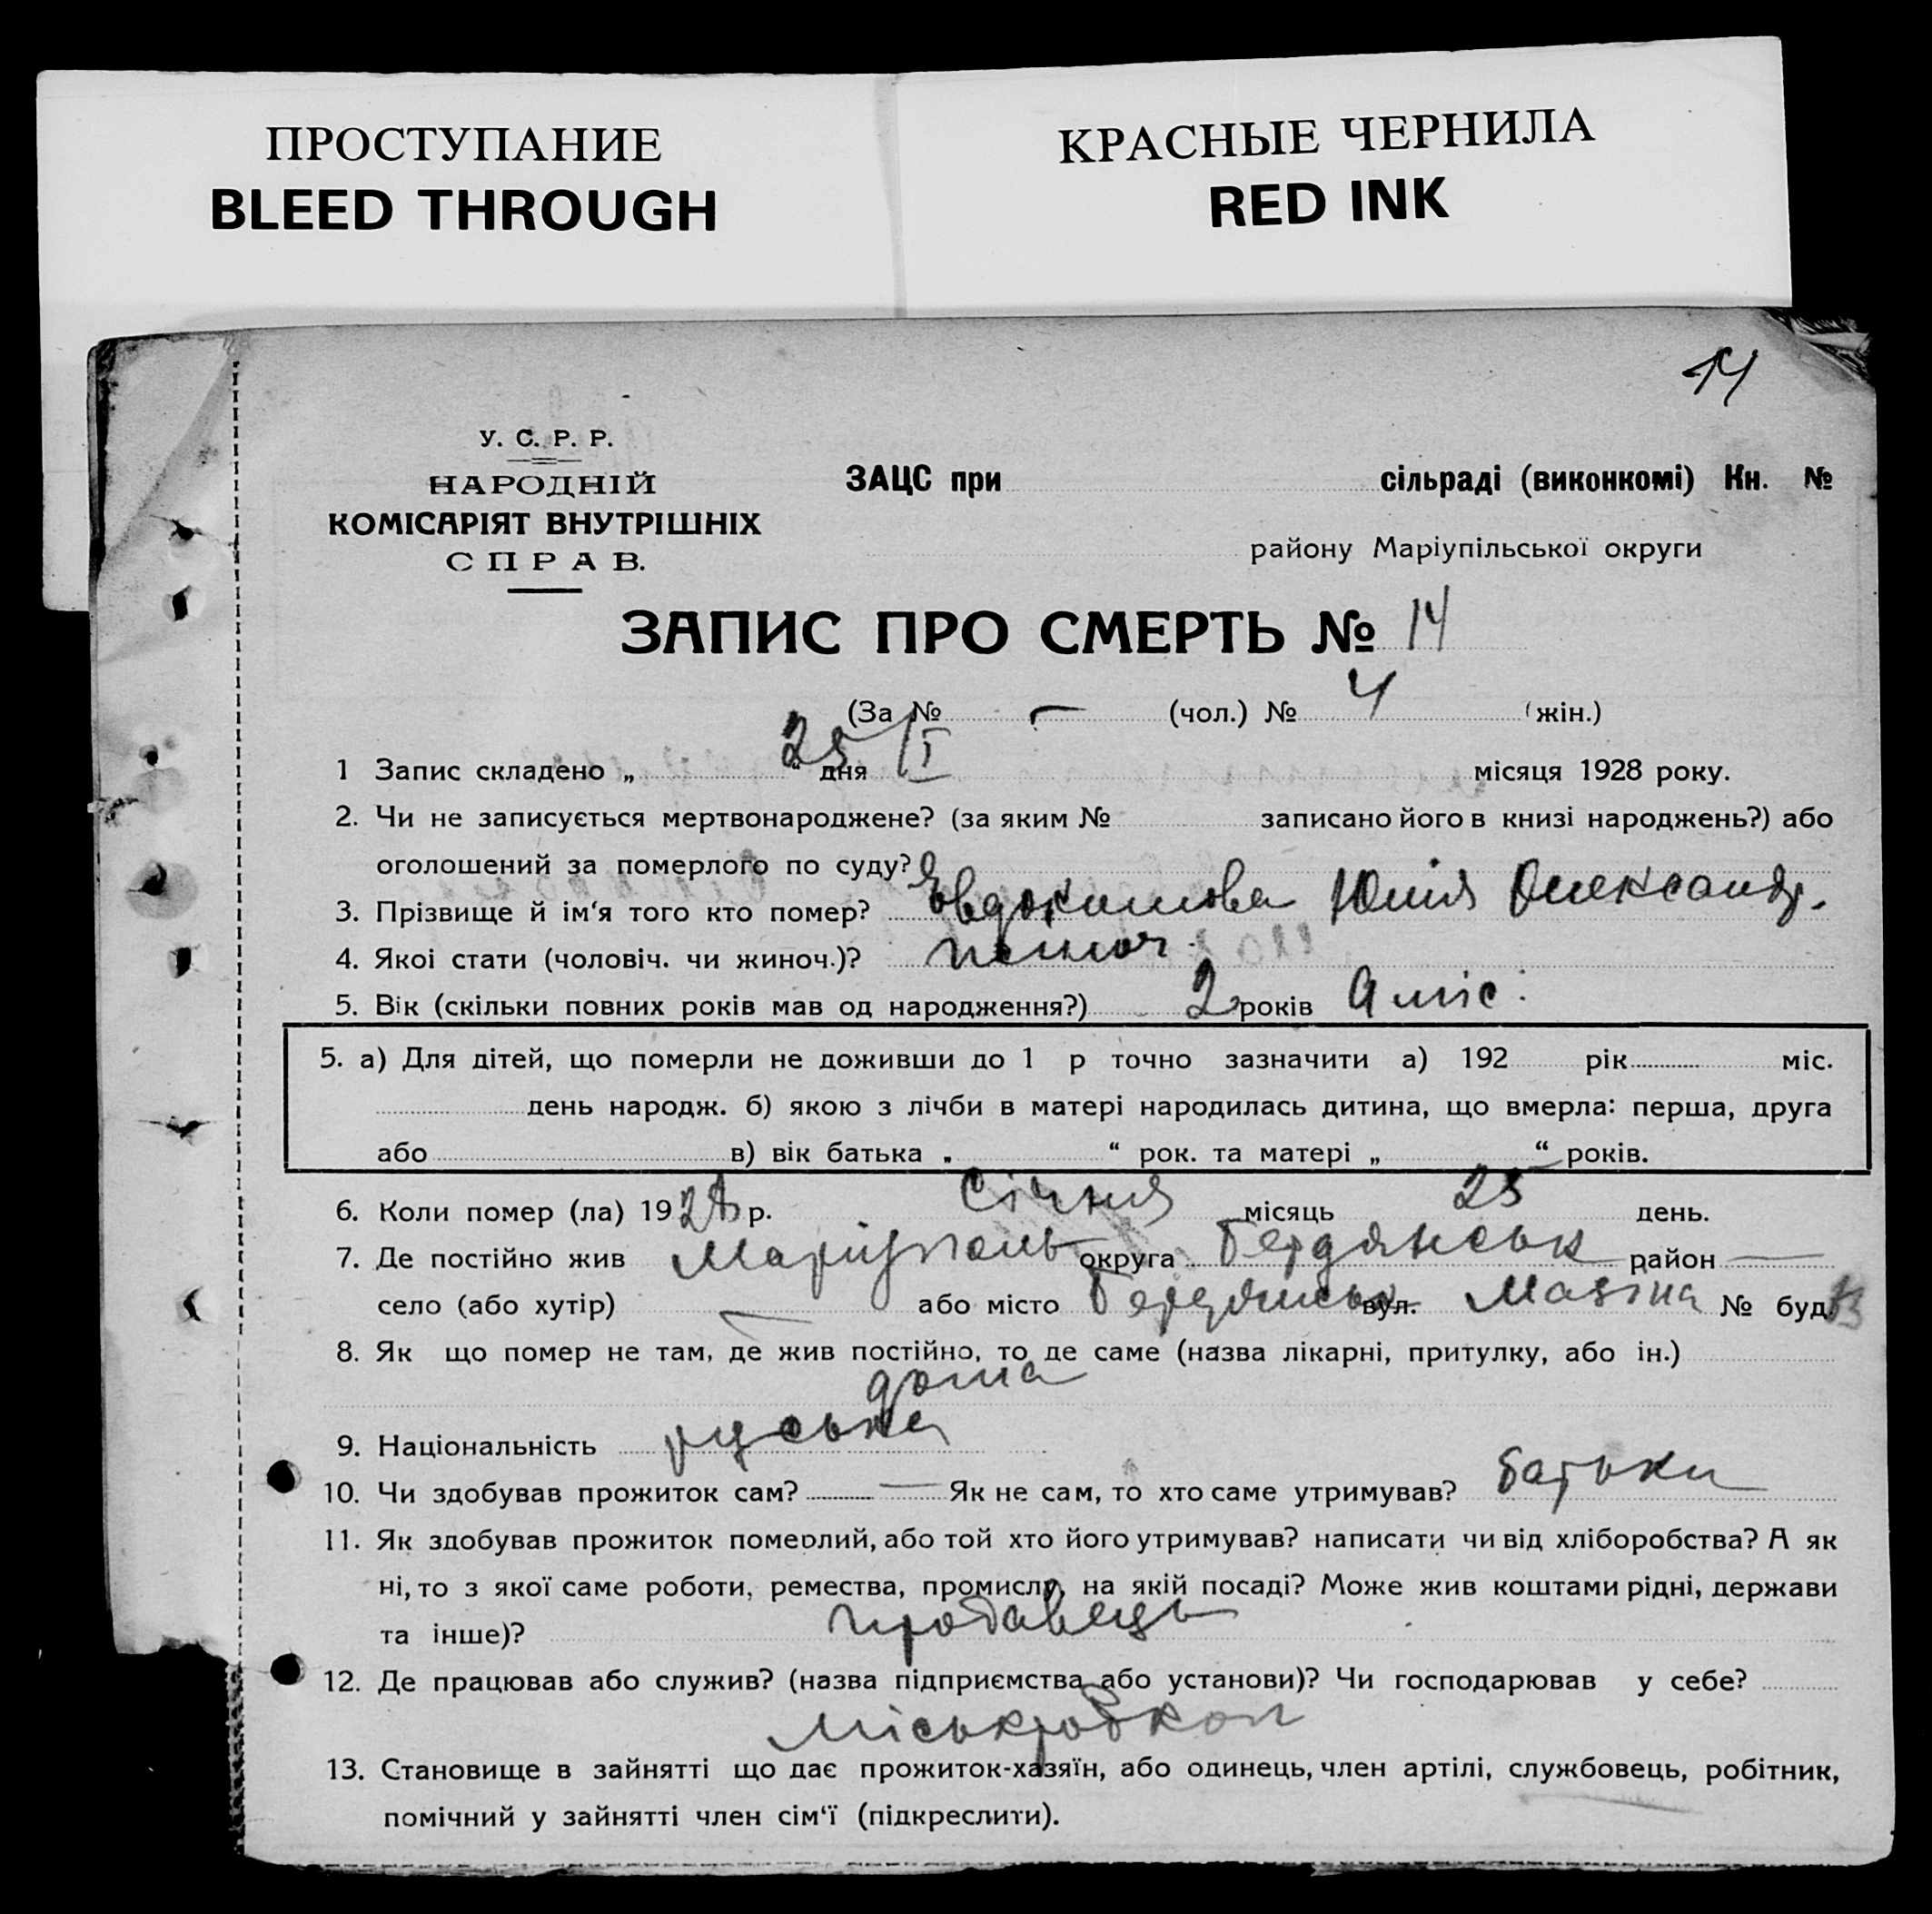 ПРОСТУПАНИЕ
BLEED THROUGH
КРАСНЫЕ ЧЕРНИЛА
RED INK
14
У. С. Р. Р.
НАРОДНІЙ
КОМІСАРІЯТ ВНУТРІШНІХ
СПРАВ.
ЗАЦС при сільраді (виконкомі) Кн. №
району Маріупільської округи
ЗАПИС ПРО СМЕРТЬ № 14
(За № — (чол.) № 4 (жін.)
1 Запис складено „ 25 “ дня /I місяця 1928 року.
2. Чи не записується мертвонароджене? (за яким № записано його в книзі народжень?) або
оголошений за померлого по суду?
3. Прізвище й ім‘я того кто помер? Євдокимова Юлія Олександр.
4. Якоі стати (чоловіч. чи жиноч.)? жіноч.
5. Вік (скільки повних років мав од народження?) 2 років 9 міс.
5. а) Для дітей, що померли не доживши до 1 р точно зазначити а) 192 рік міс.
день народж. б) якою з лічби в матері народилась дитина, що вмерла: перша, друга
або в) вік батька „ “ рок. та матері „ “ років.
6. Коли помер (ла) 1928 р. Січня місяць 23 день.
7. Де постійно жив Маріуполь округа Бердянськ район —
село (або хутір) — або місто Бердянськ вул. Мазіна № буд.
8. Як що помер не там, де жив постійно, то де саме (назва лікарні, притулку, або ін.)
дома
9. Національність руська
10. Чи здобував прожиток сам? — Як не сам, то хто саме утримував? батьки
11. Як здобував прожиток померлий, або той хто його утримував? написати чи від хліборобства? А як
ні, то з якої саме роботи, ремества, промислу, на якій посаді? Може жив коштами рідні, держави
та інше)? продавець
12. Де працював або служив? (назва підприємства або установи)? Чи господарював у себе?
Міськробкоп
13. Становище в зайнятті що дає прожиток-хазяїн, або одинець, член артілі, службовець, робітник,
помічний у зайнятті член сім‘ї (підкреслити).